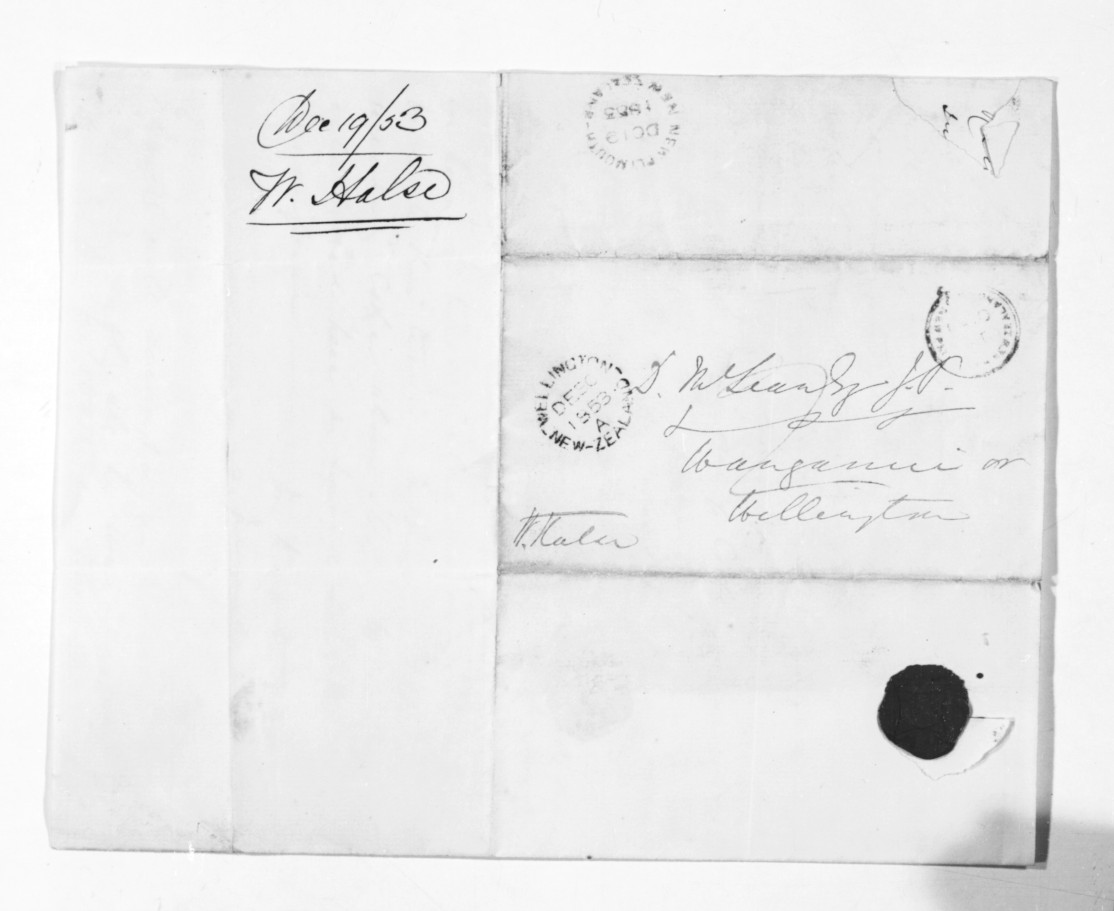 Dec 19/53
W. Halse
NEW PLYMOUTH
NEW ZEALAND
DC 19
1853
WELLINGTON
NEW-ZEALAND
DE
1853
A
D. McLean Esq J.P.
Wanganui or
Wellington
W. Halse